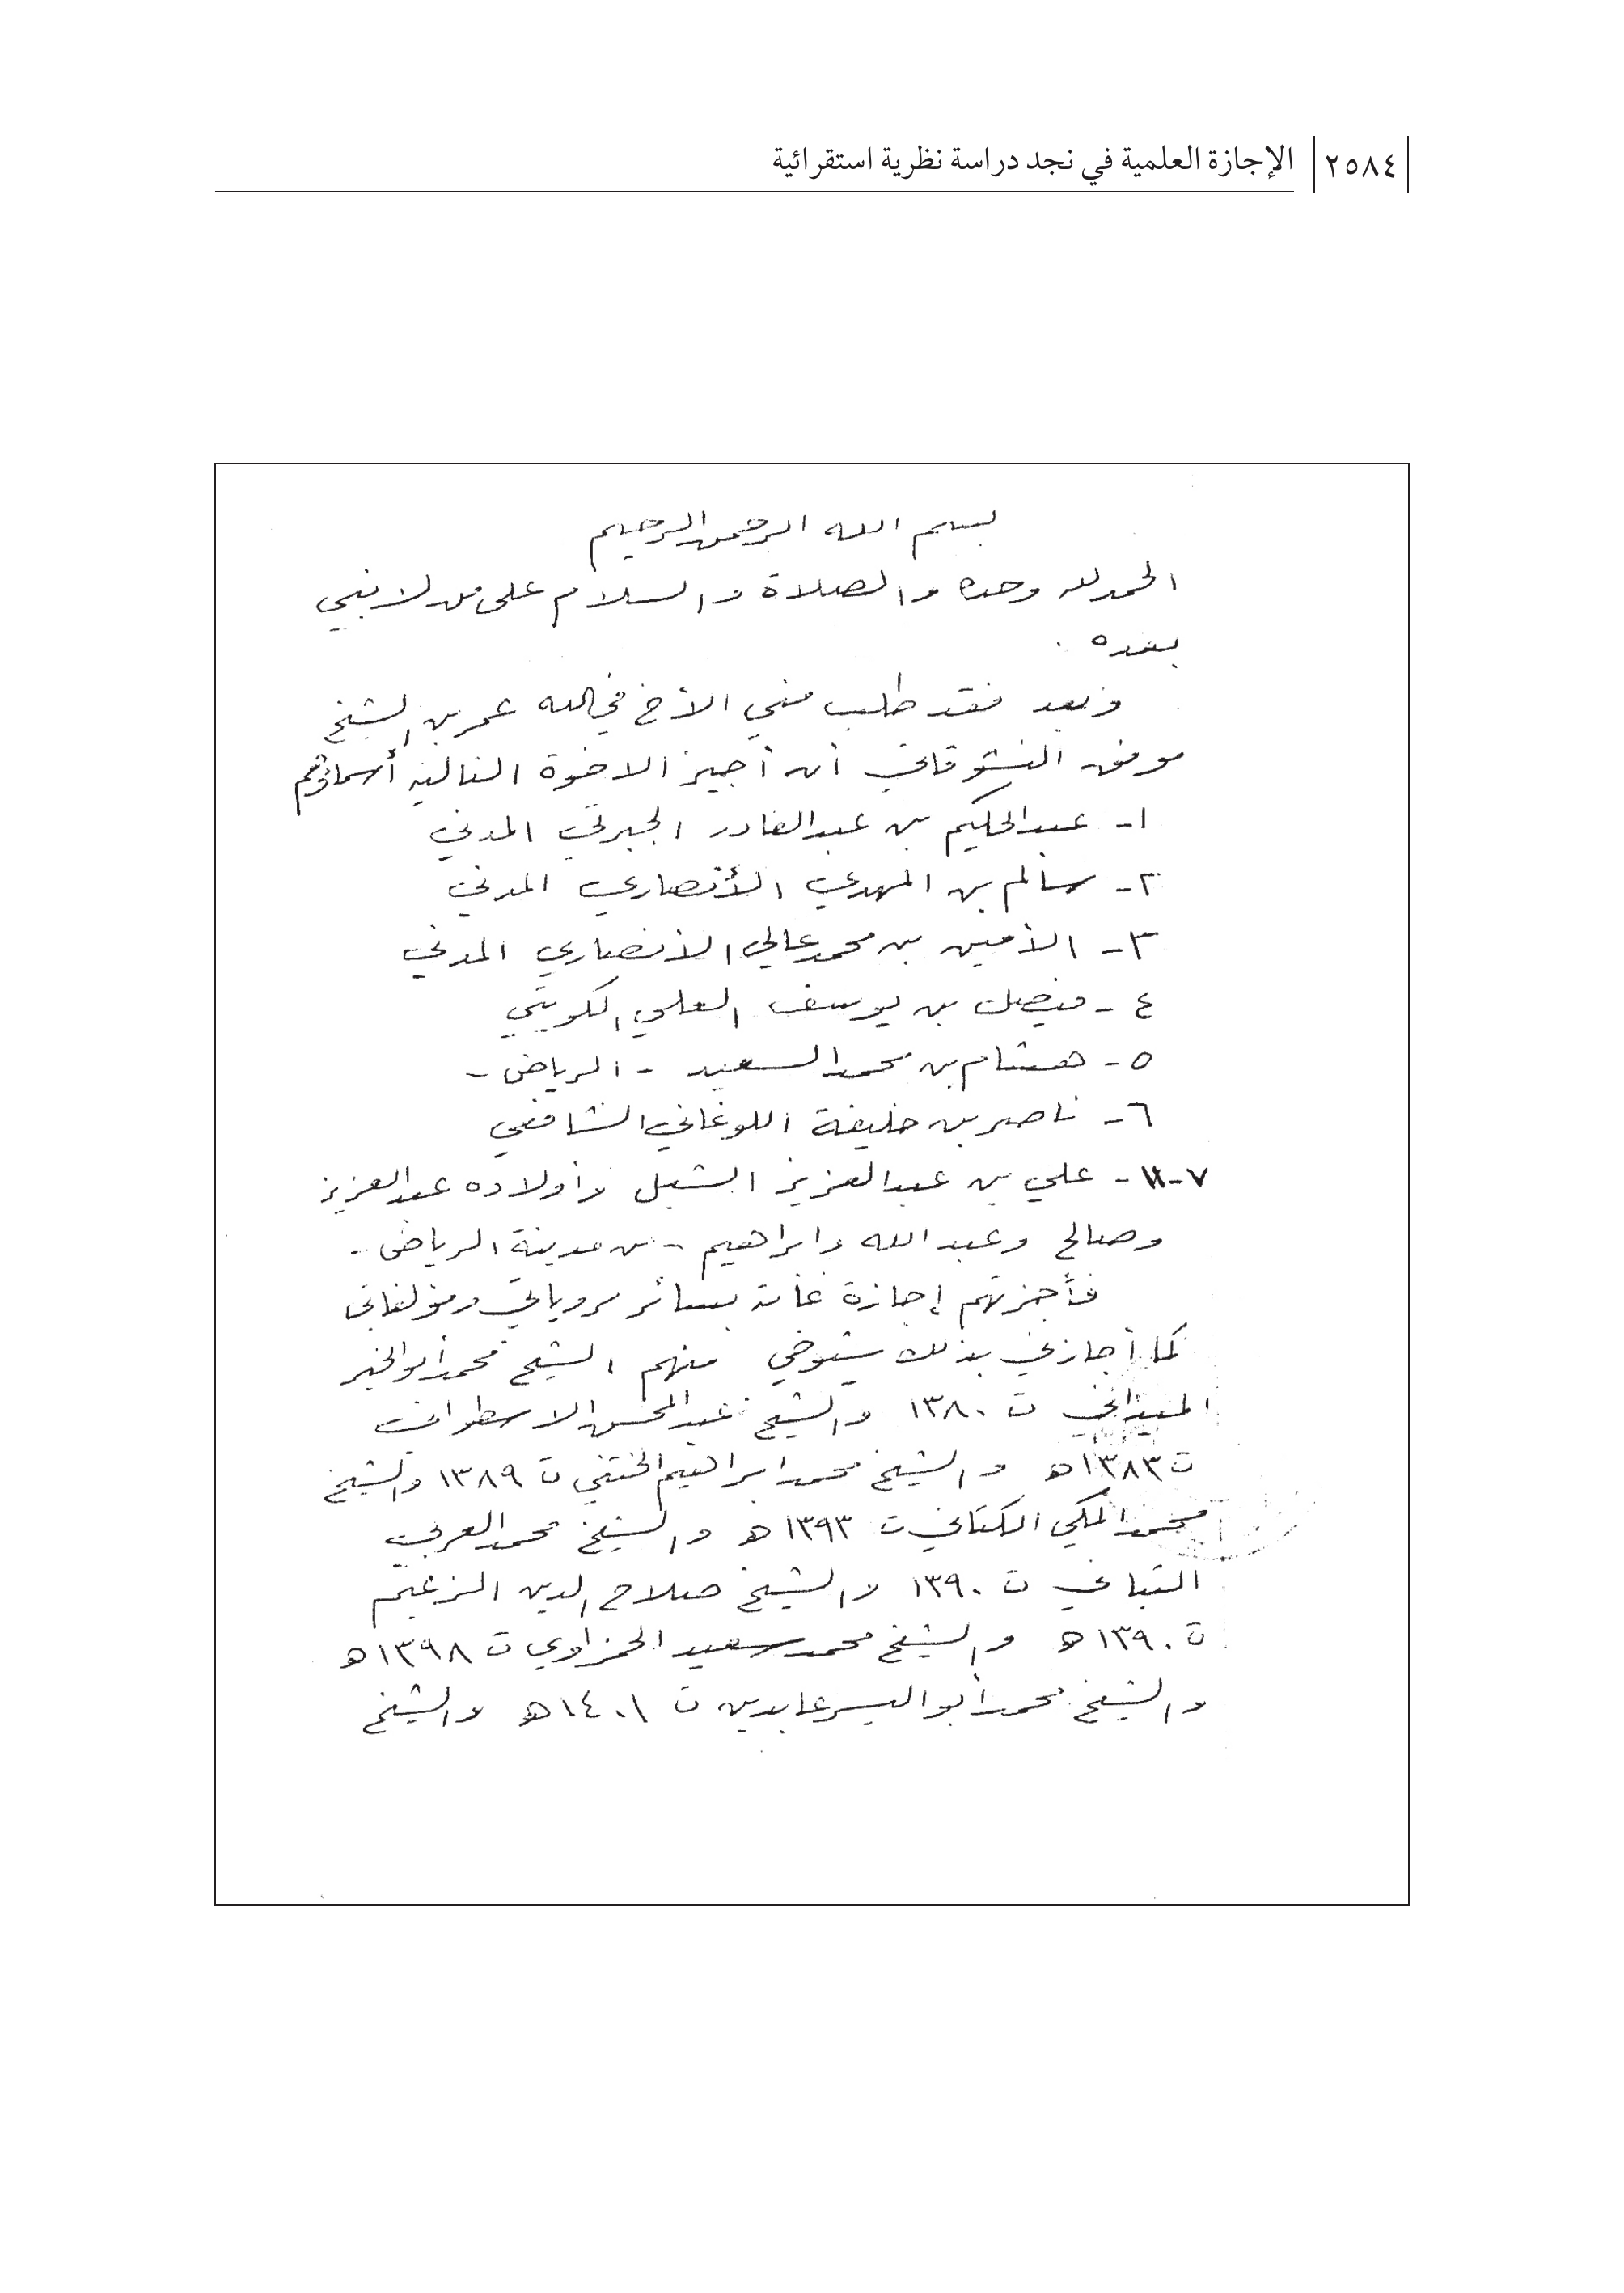 ٢٥٨٤ الإجازة العلمية في نجد دراسة نظرية استقرائية
بسم الله الرحمن الرحيم
الحمد لله وحده والصلاة والسلام على من لا نبي
بعده .
وبعد فقد طلب مني الأخ في الله عمر بن الشيخ
موفق النشوقاتي أن أجيز الاخوة التالية أسماؤهم
١- عبدالحكيم بن عبدالقادر الجبرتي المدني
٢- سالم بن المهدي الأنصاري المدني
٣- الأمين بن محمد عالي الأنصاري المدني
٤- فيصل بن يوسف العلي الكويتي
٥- هشام بن محمد السعيد - الرياض -
٦- ناصر بن خليفة اللوغاني الشافعي
٧-١١- علي بن عبدالعزيز الشبل وأولاده عبدالعزيز
وصالح وعبد الله وابراهيم - من مدينة الرياض -
فأجزتهم إجازة عامة بسائر مروياتي ومؤلفاتي
كما أجازني بذلك شيوخي منهم الشيخ محمد أبو الخير
الميداني ت ١٣٨٠ والشيخ عبدالمحسن الاسطواني
ت ١٣٨٣هـ والشيخ محمد ابراهيم الختني ت ١٣٨٩ والشيخ
محمد المكي الكتاني ت ١٣٩٣ هـ والشيخ محمد العربي
التباني ت ١٣٩٠ والشيخ صلاح الدين الزعيم
ت ١٣٩٠ هـ والشيخ محمد سعيد الحمزاوي ت ١٣٩٨ هـ
والشيخ محمد أبو اليسر عابدين ت ١٤٠١ هـ والشيخ